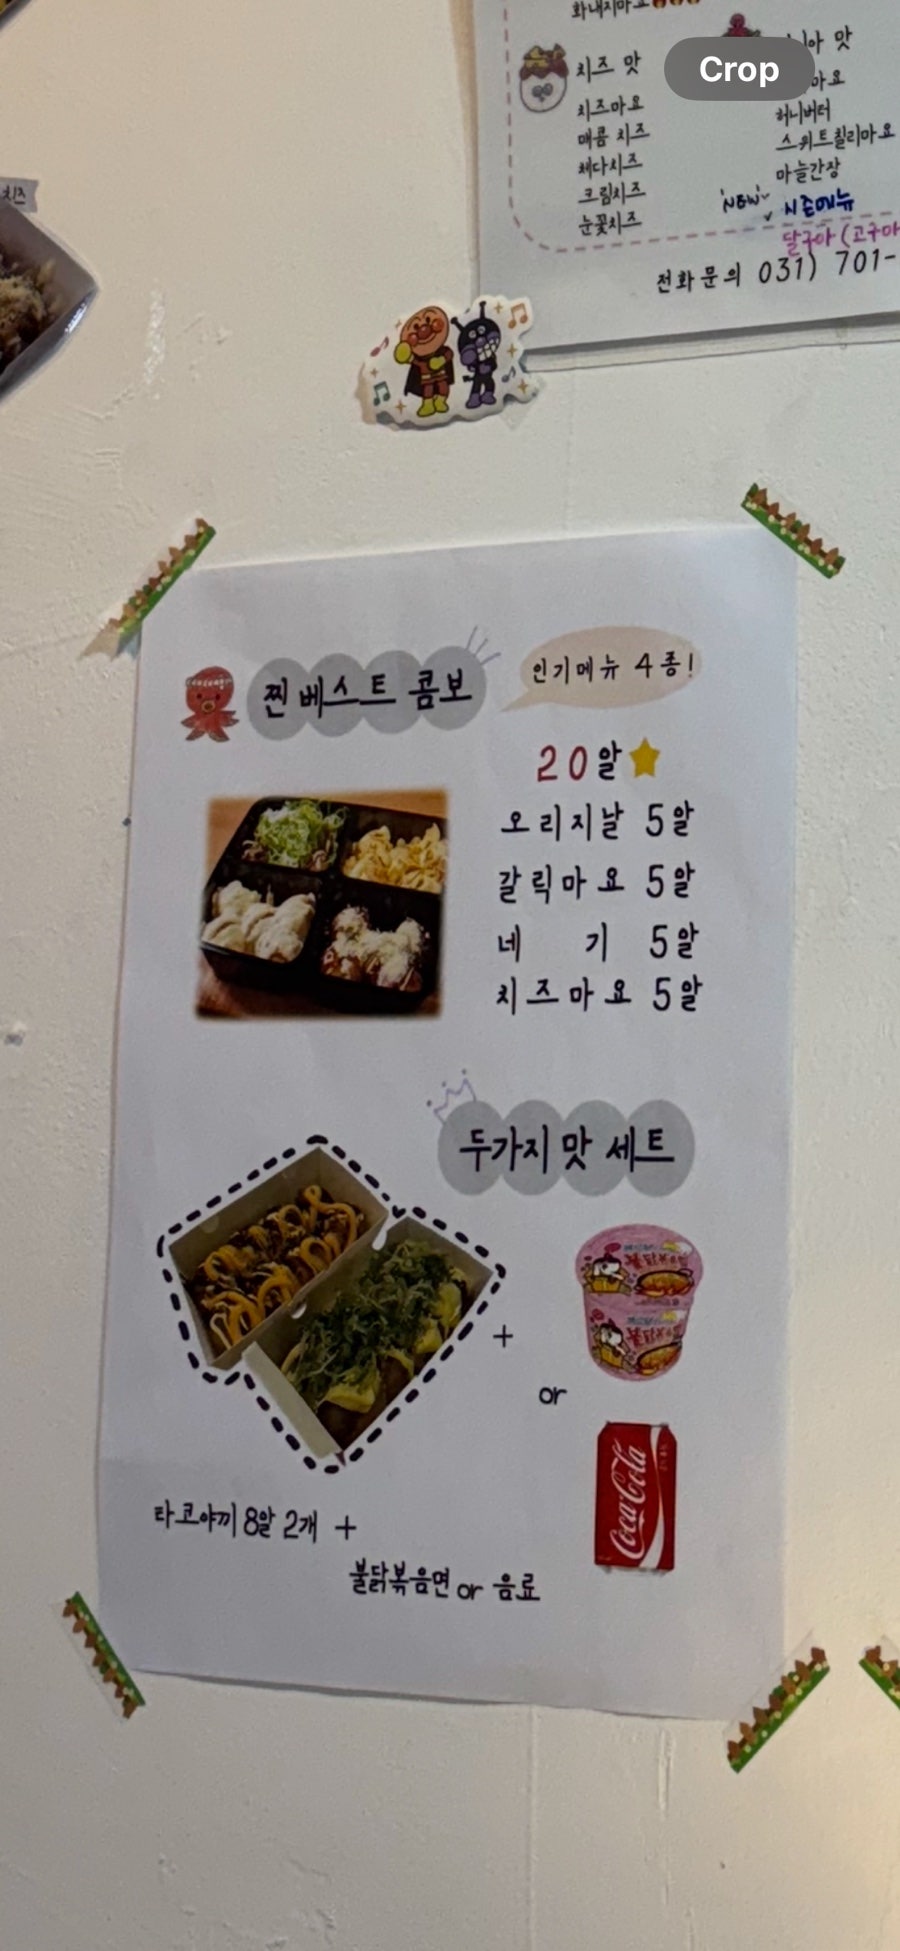 화내지마요
치즈 맛
치즈마요
매콤 치즈
체다치즈
크림치즈
눈꽃치즈
맛
마요
허니버터
스위트칠리마요
마늘간장
NEW
시즌메뉴
달구아 (고구마
전화문의 031) 701-
치즈
Crop
찐 베스트 콤보
인기메뉴 4종!
20알
오리지날 5알
갈릭마요 5알
네 기 5알
치즈마요 5알
두가지 맛 세트
+
or
Coca-Cola
타코야끼 8알 2개 +
불닭볶음면 or 음료